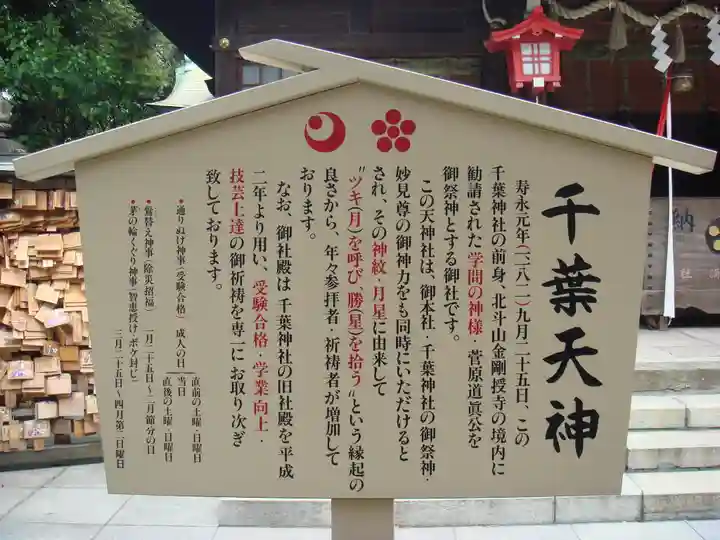 千葉天神
寿永元年(一一八二)九月二十五日、この
千葉神社の前身、北斗山金剛授寺の境内に
勧請された“学問の神様”菅原道眞公を
御祭神とする御社です。
この天神社は、御本社・千葉神社の御祭神・
妙見尊の御神力をも同時にいただけると
され、その神紋・月星に由来して
“ツキ(月)を呼び、勝(星)を拾う”という縁起の
良さから、年々参拝者・祈祷者が増加して
おります。
なお、御社殿は千葉神社の旧社殿を平成
二年より用い、受験合格・学業向上・
技芸上達の御祈祷を専一にお取り次ぎ
致しております。
●通りぬけ神事(受験合格) 成人の日 直前の土曜・日曜日
当日
直後の土曜・日曜日
●鷽替え神事(除災招福) 一月二十五日〜二月節分の日
●茅の輪くぐり神事(智恵授け・ボケ封じ)
三月二十五日〜四月第二日曜日
納